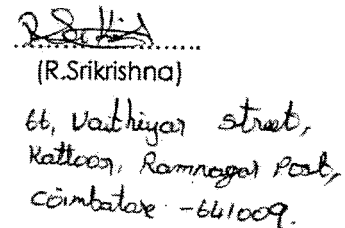 (R.Srikrishna)
66, Vaithiyar street,
Kattoor, Ramnagar Post,
Coimbatore -641009.